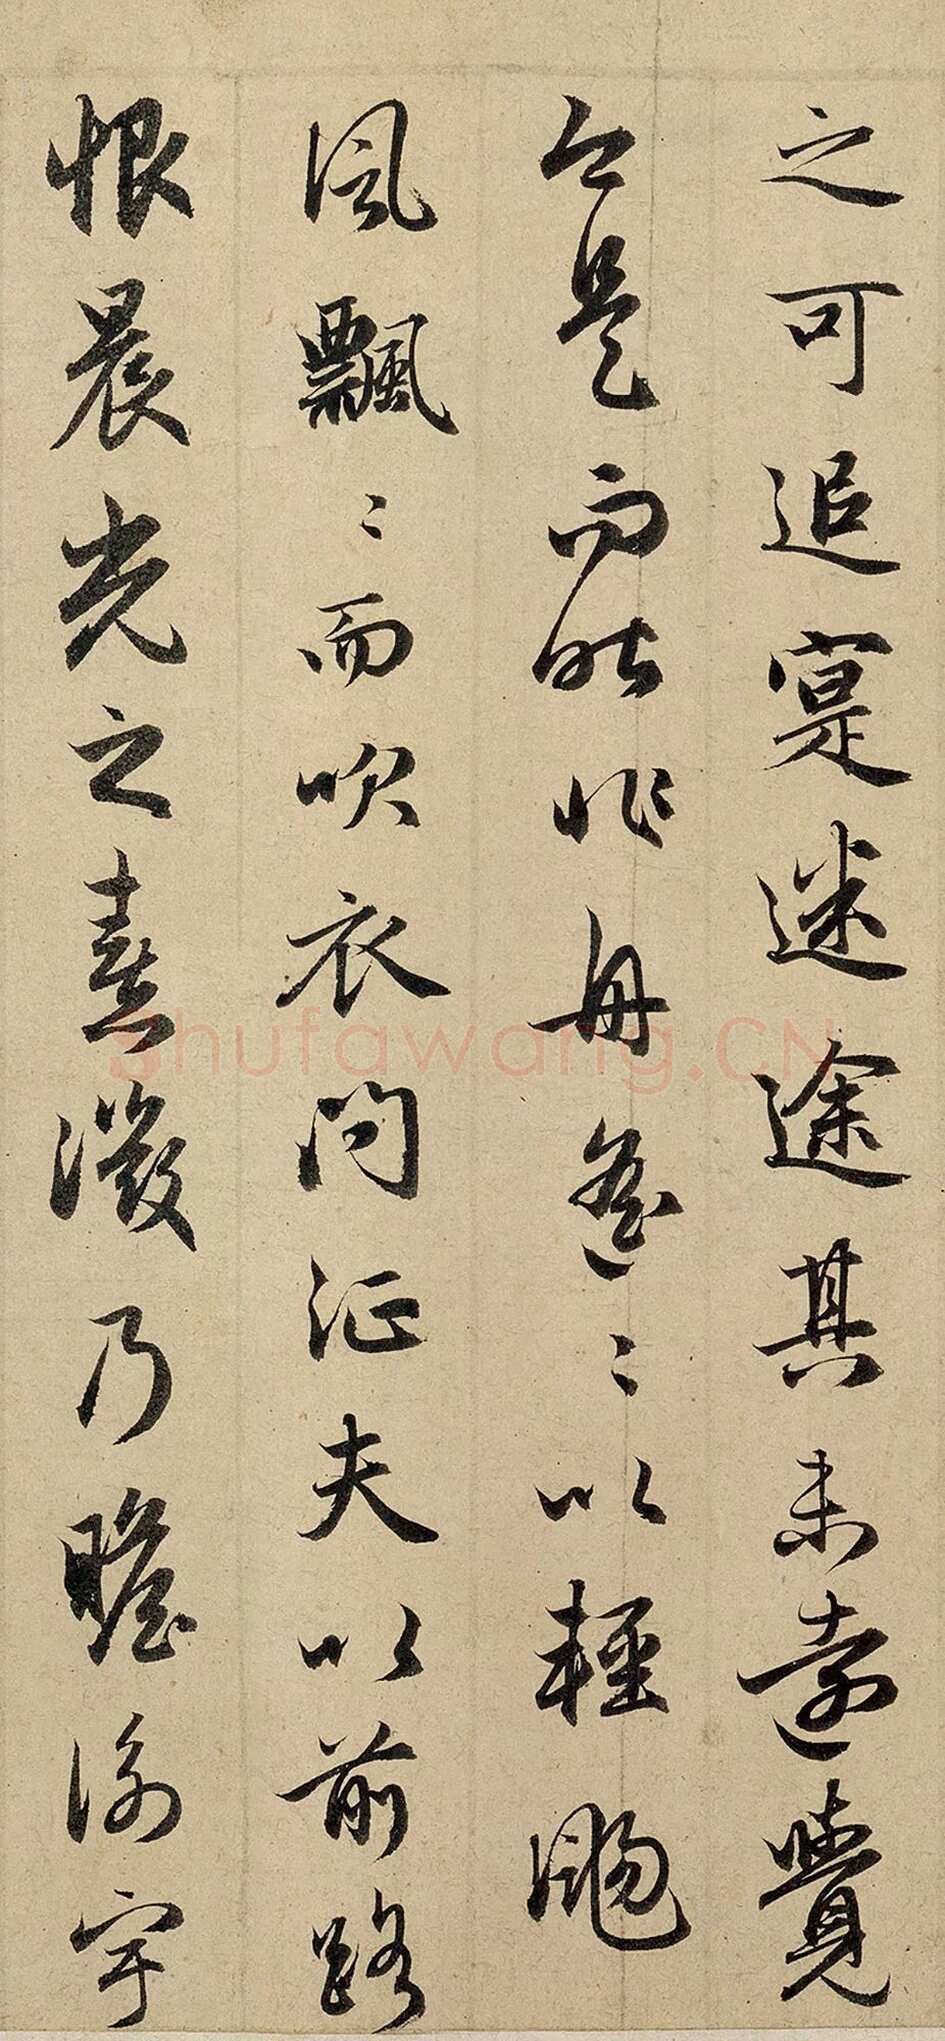 之可追寔迷途其未遠覺
今是而昨非舟遥〻以輕颺
風飄〻而吹衣問征夫以前路
恨晨光之熹微乃瞻衡宇
shufawang.CN